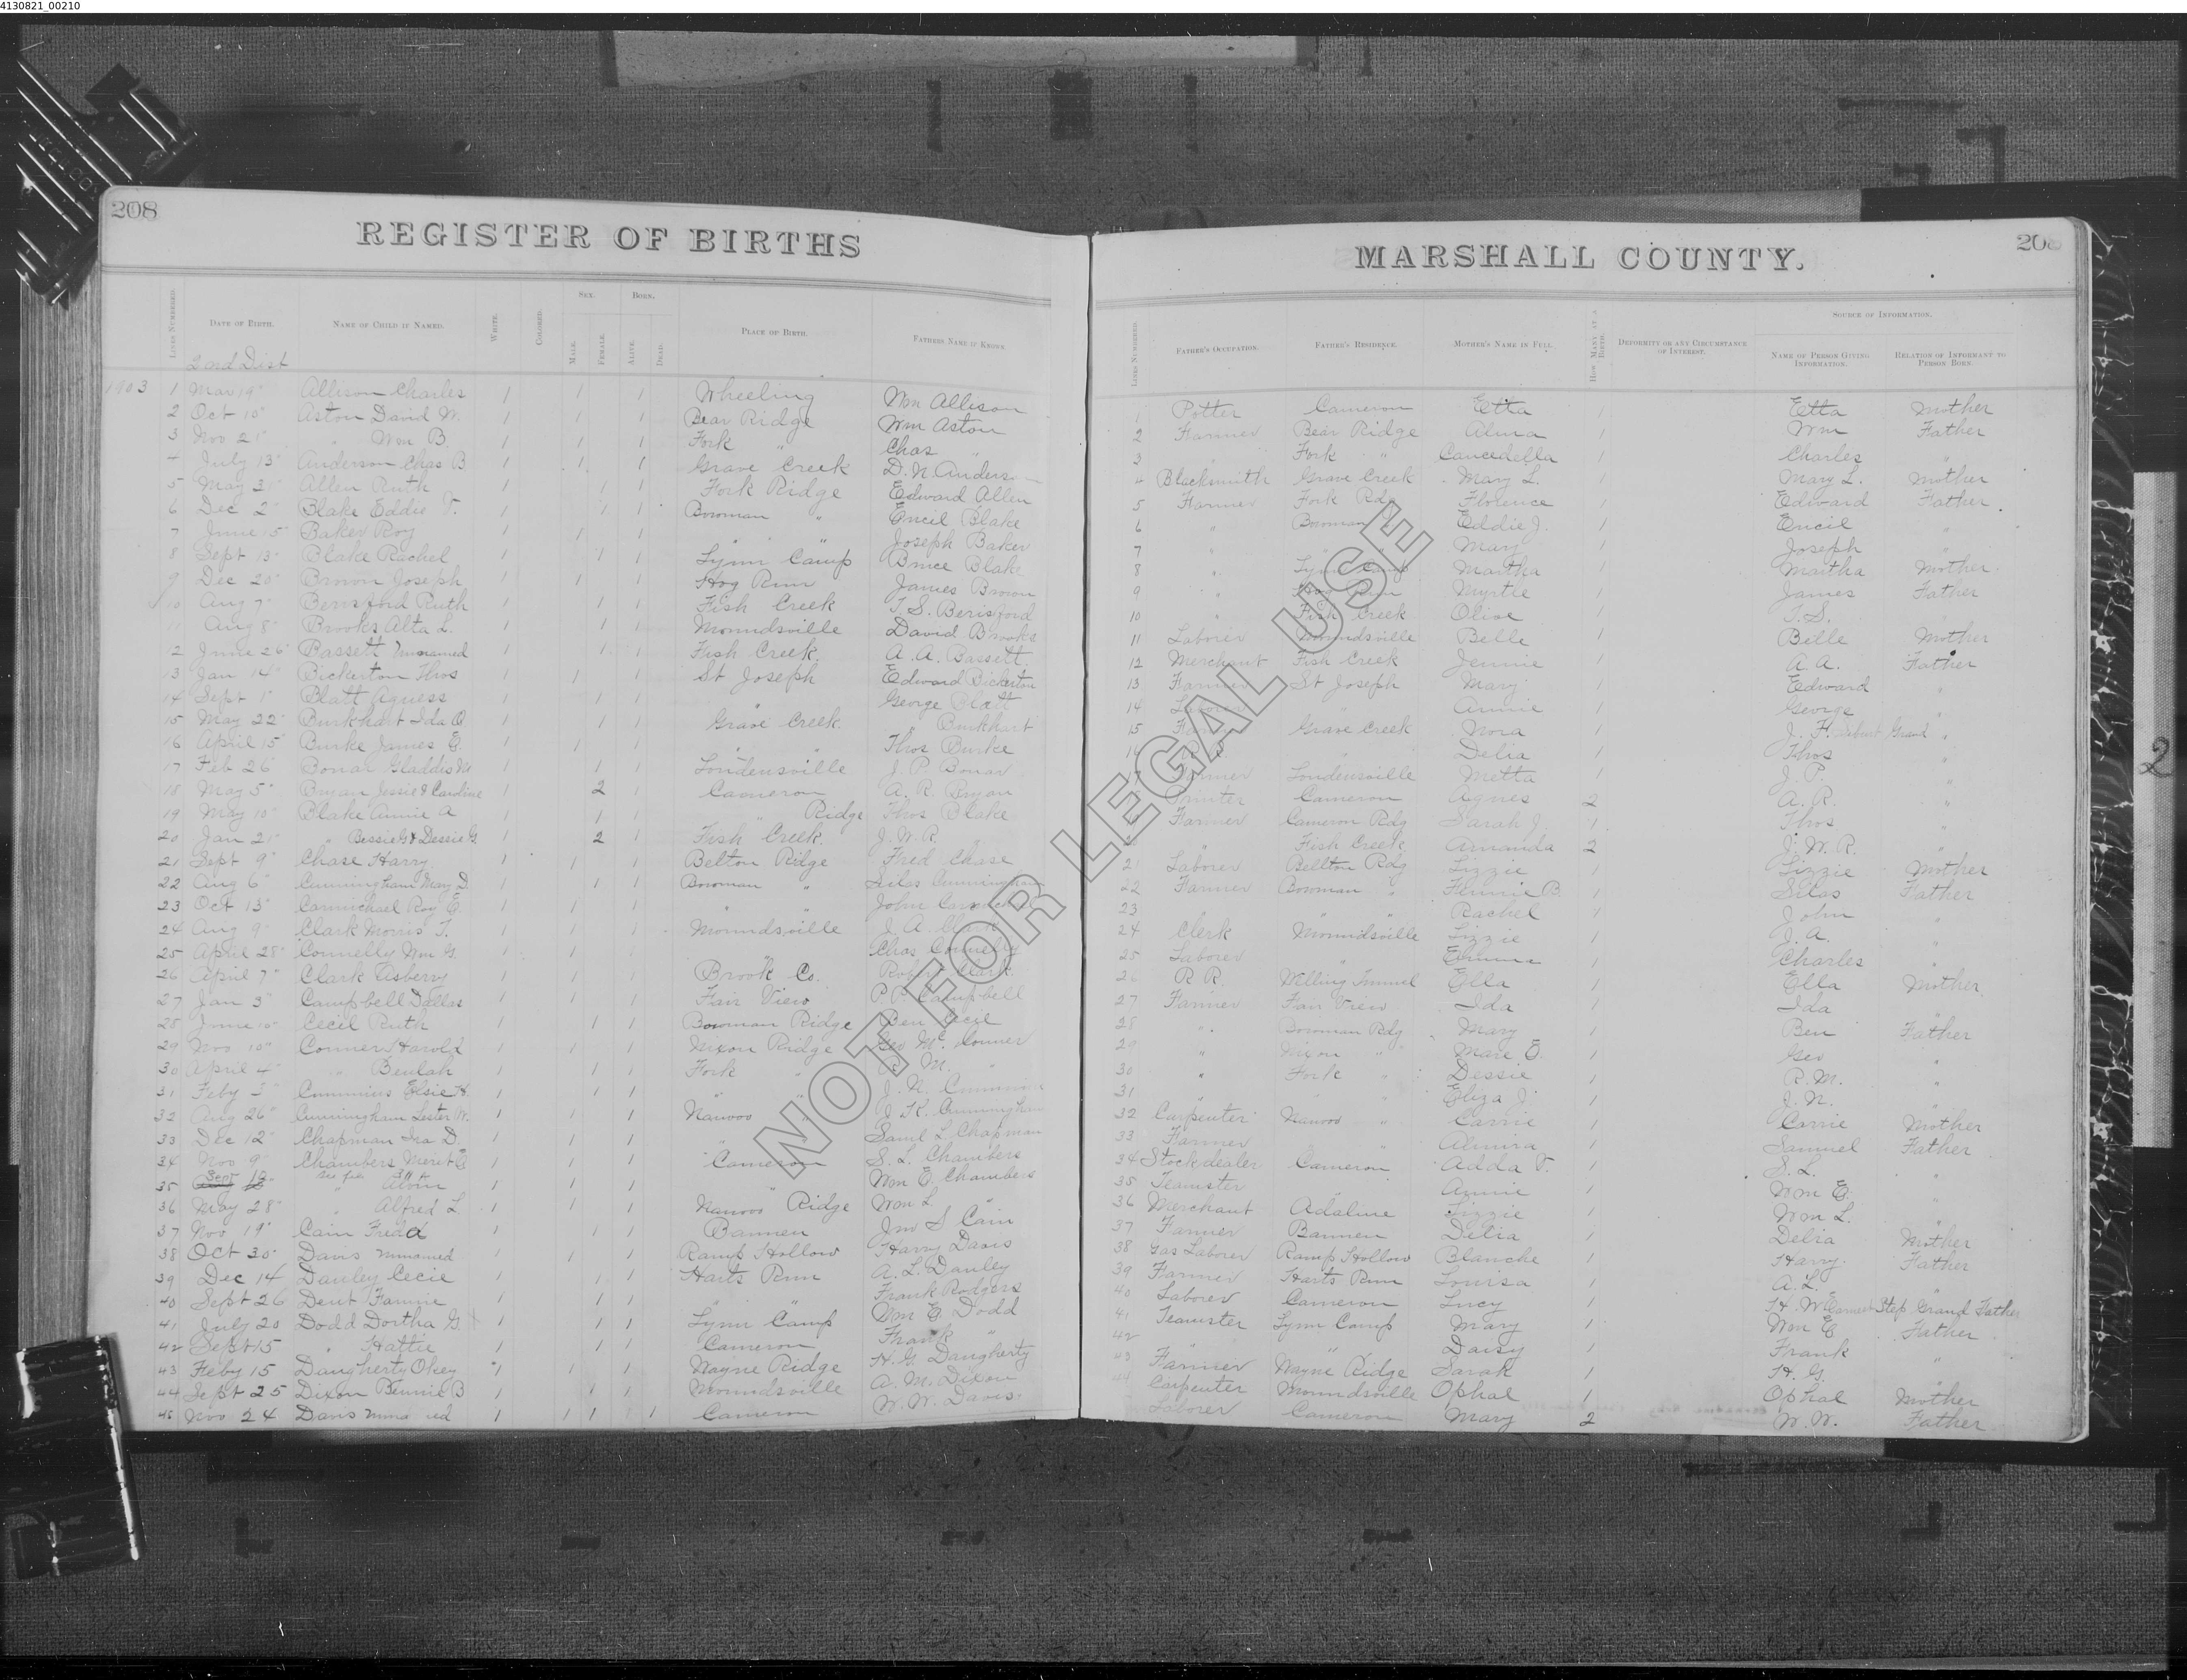 4130821_00210
208
REGISTER OF BIRTHS
MARSHALL COUNTY.
208
LINES NUMBERED. DATE OF BIRTH. NAME OF CHILD IF NAMED. WHITE. COLORED. SEX. MALE. FEMALE. BORN. ALIVE. DEAD. PLACE OF BIRTH. FATHERS NAME IF KNOWN.
LINES NUMBERED. FATHER'S OCCUPATION. FATHER'S RESIDENCE. MOTHER'S NAME IN FULL. HOW MANY AT A BIRTH. DEFORMITY OR ANY CIRCUMSTANCE OF INTEREST. SOURCE OF INFORMATION. NAME OF PERSON GIVING INFORMATION. RELATION OF INFORMANT TO PERSON BORN.
2nd Dist
1903 1 Mar 19" Allison Charles 1 1 1 Wheeling Wm Allison 1 Potter Cameron Etta 1 Etta Mother
2 Oct 10" Aston David W. 1 1 1 Bear Ridge Wm Aston 2 Farmer Bear Ridge Alma 1 Wm Father
3 Nov 21" " Wm B. 1 1 1 Fork " Chas " 3 " Fork " Cancedella 1 Charles "
4 July 13" Anderson Chas B 1 1 1 Grave Creek D. N. Anders 4 Blacksmith Grave Creek Mary L. 1 Mary L. Mother
5 May 31" Allen Ruth 1 1 1 Fork Ridge Edward Allen 5 Farmer Fork Rdg Florence Edward Father
6 Dec 2" Blake Eddie V. 1 1 1 Bowman " Encil Blake 6 " Bowman Eddie J. 1 Encil "
7 June 15" Baker Roy 1 1 1 " " Joseph Baker 7 " Mary 1 Joseph "
8 Sept 13" Blake Rachel 1 1 1 Lynn Camp Bruce Blake 8 " Lynn Camp Martha 1 Martha Mother
9 Dec 20" Brown Joseph 1 1 1 Hog Run James Brown 9 " Hog Run Myrtie 1 James Father
10 Aug 7" Berisford Ruth 1 1 1 Fish Creek T. S. Berisford 10 " Fish Creek Olive 1 T. S. "
11 Aug 8" Brooks Alta L. 1 1 1 Moundsville David Brooks 11 Laborer Moundsville Belle 1 Belle Mother
12 June 26" Bassett Unnamed 1 1 1 Fish Creek A. A. Bassett 12 Merchant Fish Creek Jennie 1 A A. Father
13 Jan 14" Bickerton Thos 1 1 1 St Joseph Edward Bickerton 13 Farmer St Joseph Mary 1 Edward "
14 Sept 1" Blatt Agness 1 1 1 " George Blatt 14 Laborer " Annie 1 George "
15 May 22" Burkhart Ida O 1 1 1 Grave Creek Burkhart 15 Grave Creek Nora 1 J. H. Grand "
16 April 15" Burke James E. 1 1 1 " " Thos Burke 16 " Delia 1 Thos "
17 Feb 26" Bonar Gladdis M 1 1 1 Loudensville J. P. Bonar 17 Farmer Loudensville Metta 1 J. P. "
18 May 5" Bryan Jessie & Caroline 1 2 1 Cameron A. R. Bryan Painter Cameron Agnes 2 A. R. "
19 May 10" Blake Annie A 1 1 1 " Ridge Thos Blake Farmer Cameron Rdg Sarah J. 1 Thos "
20 Jan 21" " Bessie G & Dessie G 1 2 1 Fish Creek J. W. R. " " Fish Creek Amanda 2 J. W. R. "
21 Sept 9" Chase Harry 1 1 1 Belton Ridge Fred Chase 21 Laborer Bellton Rdg Lizzie 1 Lizzie Mother
22 Aug 6" Cunningham Mary D. 1 1 1 Bowman " Silas Cunningham 22 Farmer Bowman " Fannie B. 1 Silas Father
23 Oct 13" Carmichael Roy E. 1 1 1 " " John Carmichael 23 " " Rachel 1 John "
24 Aug 9" Clark Morris T. 1 1 1 Moundsville J. A. Clark 24 Clerk Moundsville Lizzie 1 J. A. "
25 April 28" Connelly Wm G. 1 1 1 " Chas Connelly 25 Laborer " Emma 1 Charles "
26 April 7" Clark Asberry 1 1 1 Brook Co. Robert Clark 26 R. R. Welling Tunnel Ella 1 Ella Mother
27 Jan 3" Campbell Dallas 1 1 1 Fair View P. P. Campbell 27 Farmer Fair View Ida 1 Ida "
28 June 10" Cecil Ruth 1 1 1 Bowman Ridge Ben Cecil 28 " Bowman Rdg Mary 1 Ben Father
29 Nov 10" Conner Harold 1 1 1 Nixon Ridge Geo Mc Conner 29 " Nixon " Marie E. 1 Geo "
30 April 4" " Beulah 1 1 1 Fork " R. M. " 30 " Fork " Dessie 1 R. M. "
31 Feby Cummins Elsie H. 1 1 1 " " J. N. Cummins 31 " " Eliza J. 1 J. N. "
32 Aug 26" Cunningham Lester W. 1 1 1 Nauvoo " J. K. Cunningham 32 Carpenter Nauvoo " Carrie 1 Carrie Mother
33 Dec 12" Chapman Ira D. 1 1 1 " " Saml L Chapman 33 Farmer " " Almira 1 Samuel Father
34 Nov 9" Chambers Merit E 1 1 1 Cameron S. L. Chambers 34 Stockdealer Cameron Adda V. 1 S. L. "
35 Sept 12" " Alvin 1 1 1 " Wm E. Chambers 35 Teamster " Annie 1 Wm E. "
36 May 28" " Alfred L. 1 1 1 Nauvoo Ridge Wm L " 36 Merchant Adaline Lizzie 1 Wm L. "
37 Nov 19" Cain Freda 1 1 1 Bannen Jno S Cain 37 Farmer Bannen Delia 1 Delia Mother
38 Oct 30" Davis Unnamed 1 1 1 Ramp Hollow Harry Davis 38 Gas Laborer Ramp Hollow Blanche 1 Harry Father
39 Dec 14 Dauley Cecie 1 1 1 Harts Run A. L. Dauley 39 Farmer Harts Run Louisa 1 A. L. "
40 Sept 26 Dent Fannie 1 1 1 " " Frank Rodgers 40 Laborer Cameron Lucy 1 H. W. Earnest Step Grand Father
41 July 20 Dodd Dortha G. 1 1 1 Lynn Camp Wm E Dodd 41 Teamster Lynn Camp Mary 1 Wm E Father
42 Sept 15 " Hattie 1 1 1 Cameron Frank " 42 " " Daisy 1 Frank "
43 Feby 15 Daugherty Okey 1 1 1 Wayne Ridge H. G. Daugherty 43 Farmer Wayne Ridge Sarah 1 H. G. "
44 Sept 25 Dixon Bennie B 1 1 1 Moundsville A. M. Dixon 44 Carpenter Moundsville Ophal 1 Ophal Mother
45 Nov 24 Davis 1 1 1 1 Cameron W. W. Davis Laborer Cameron Mary 2 W. W. Father
NOT FOR LEGAL USE
2